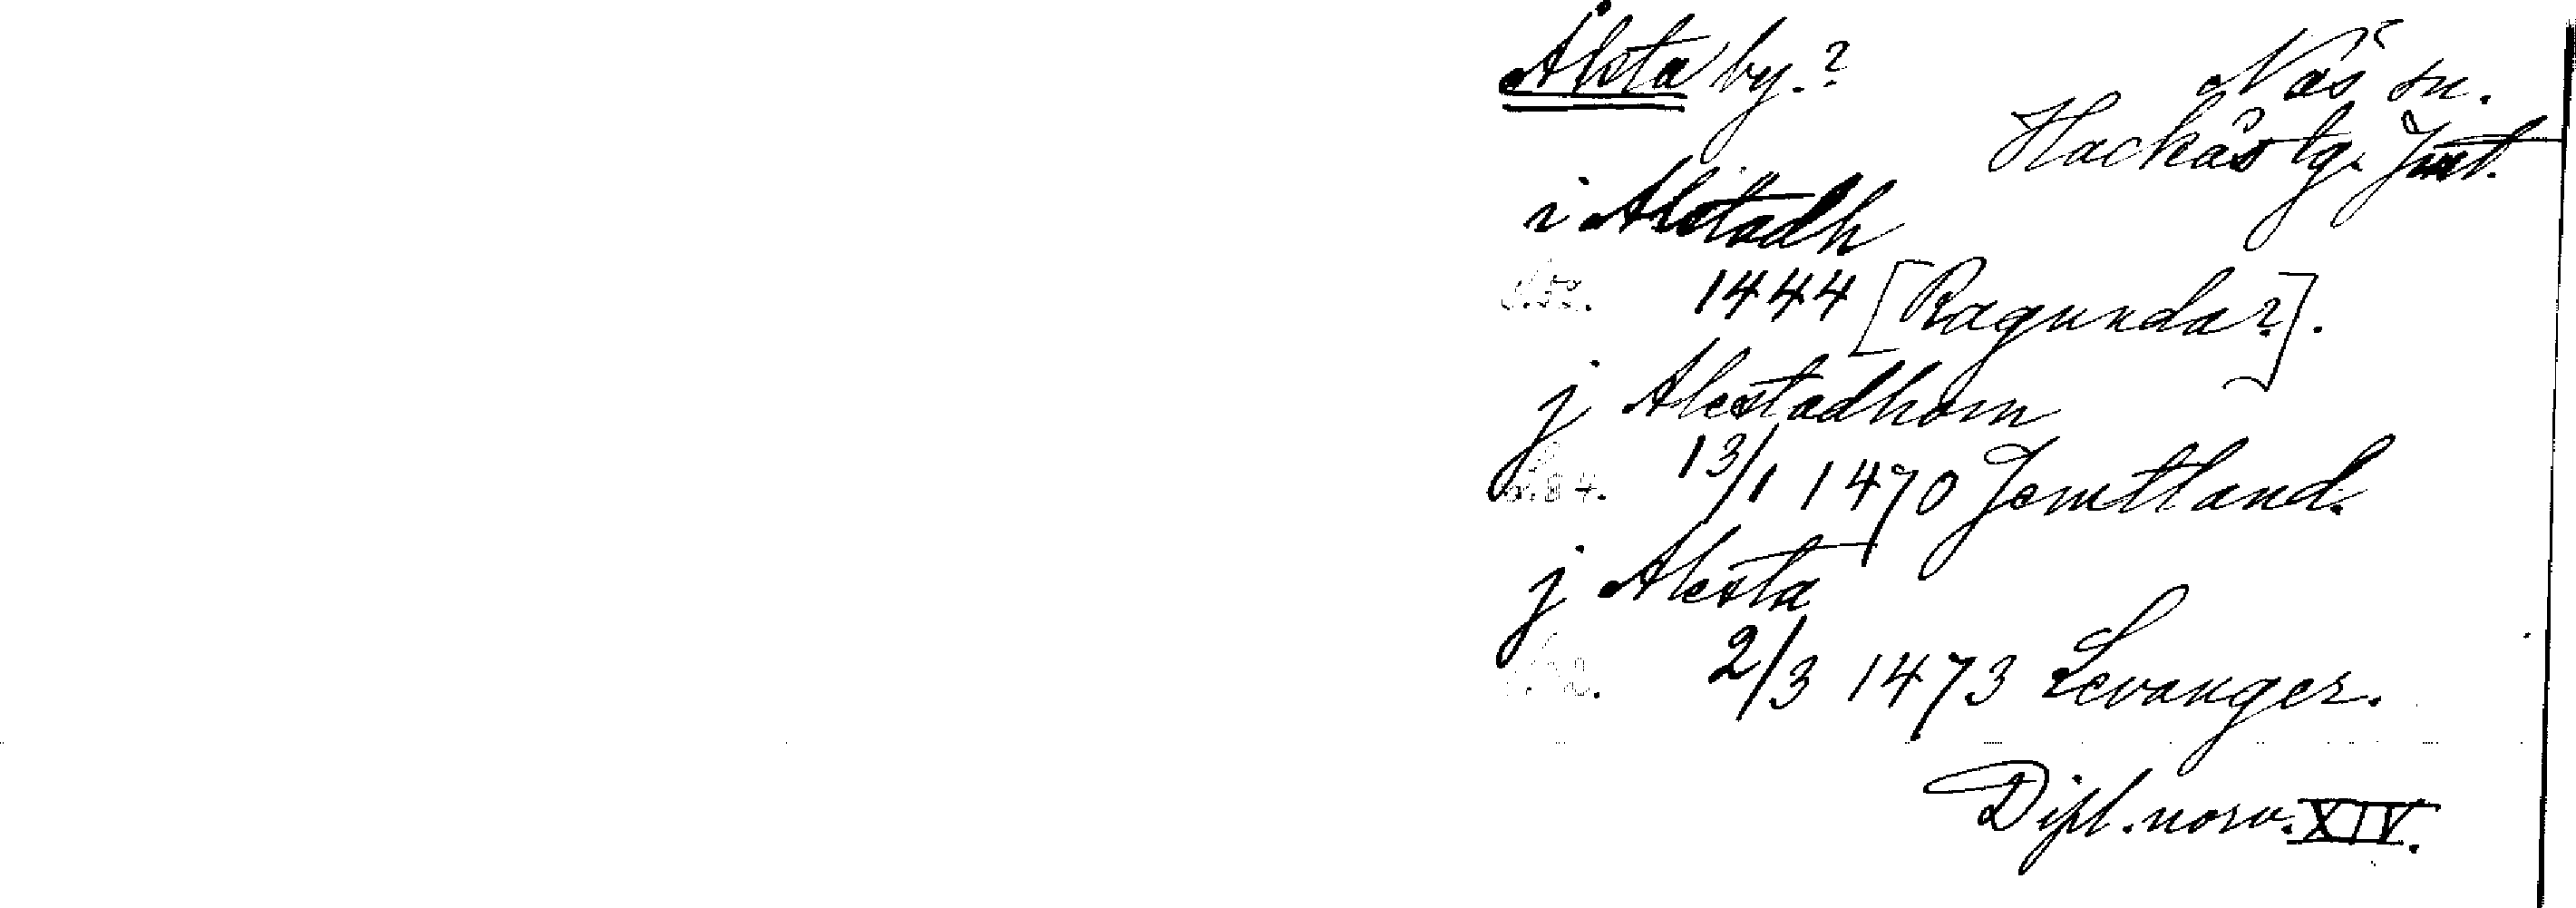 Ålsta by.?
Näs sn.
Hackås tg. Jmt.
i Alstadh
s.52. 1444 [Ragunda?].
j Alestadhom
s.84. 13/1 1470 Jemtland.
j Alesta
2/3 1473 Levanger.
Dipl. norv. XIV.